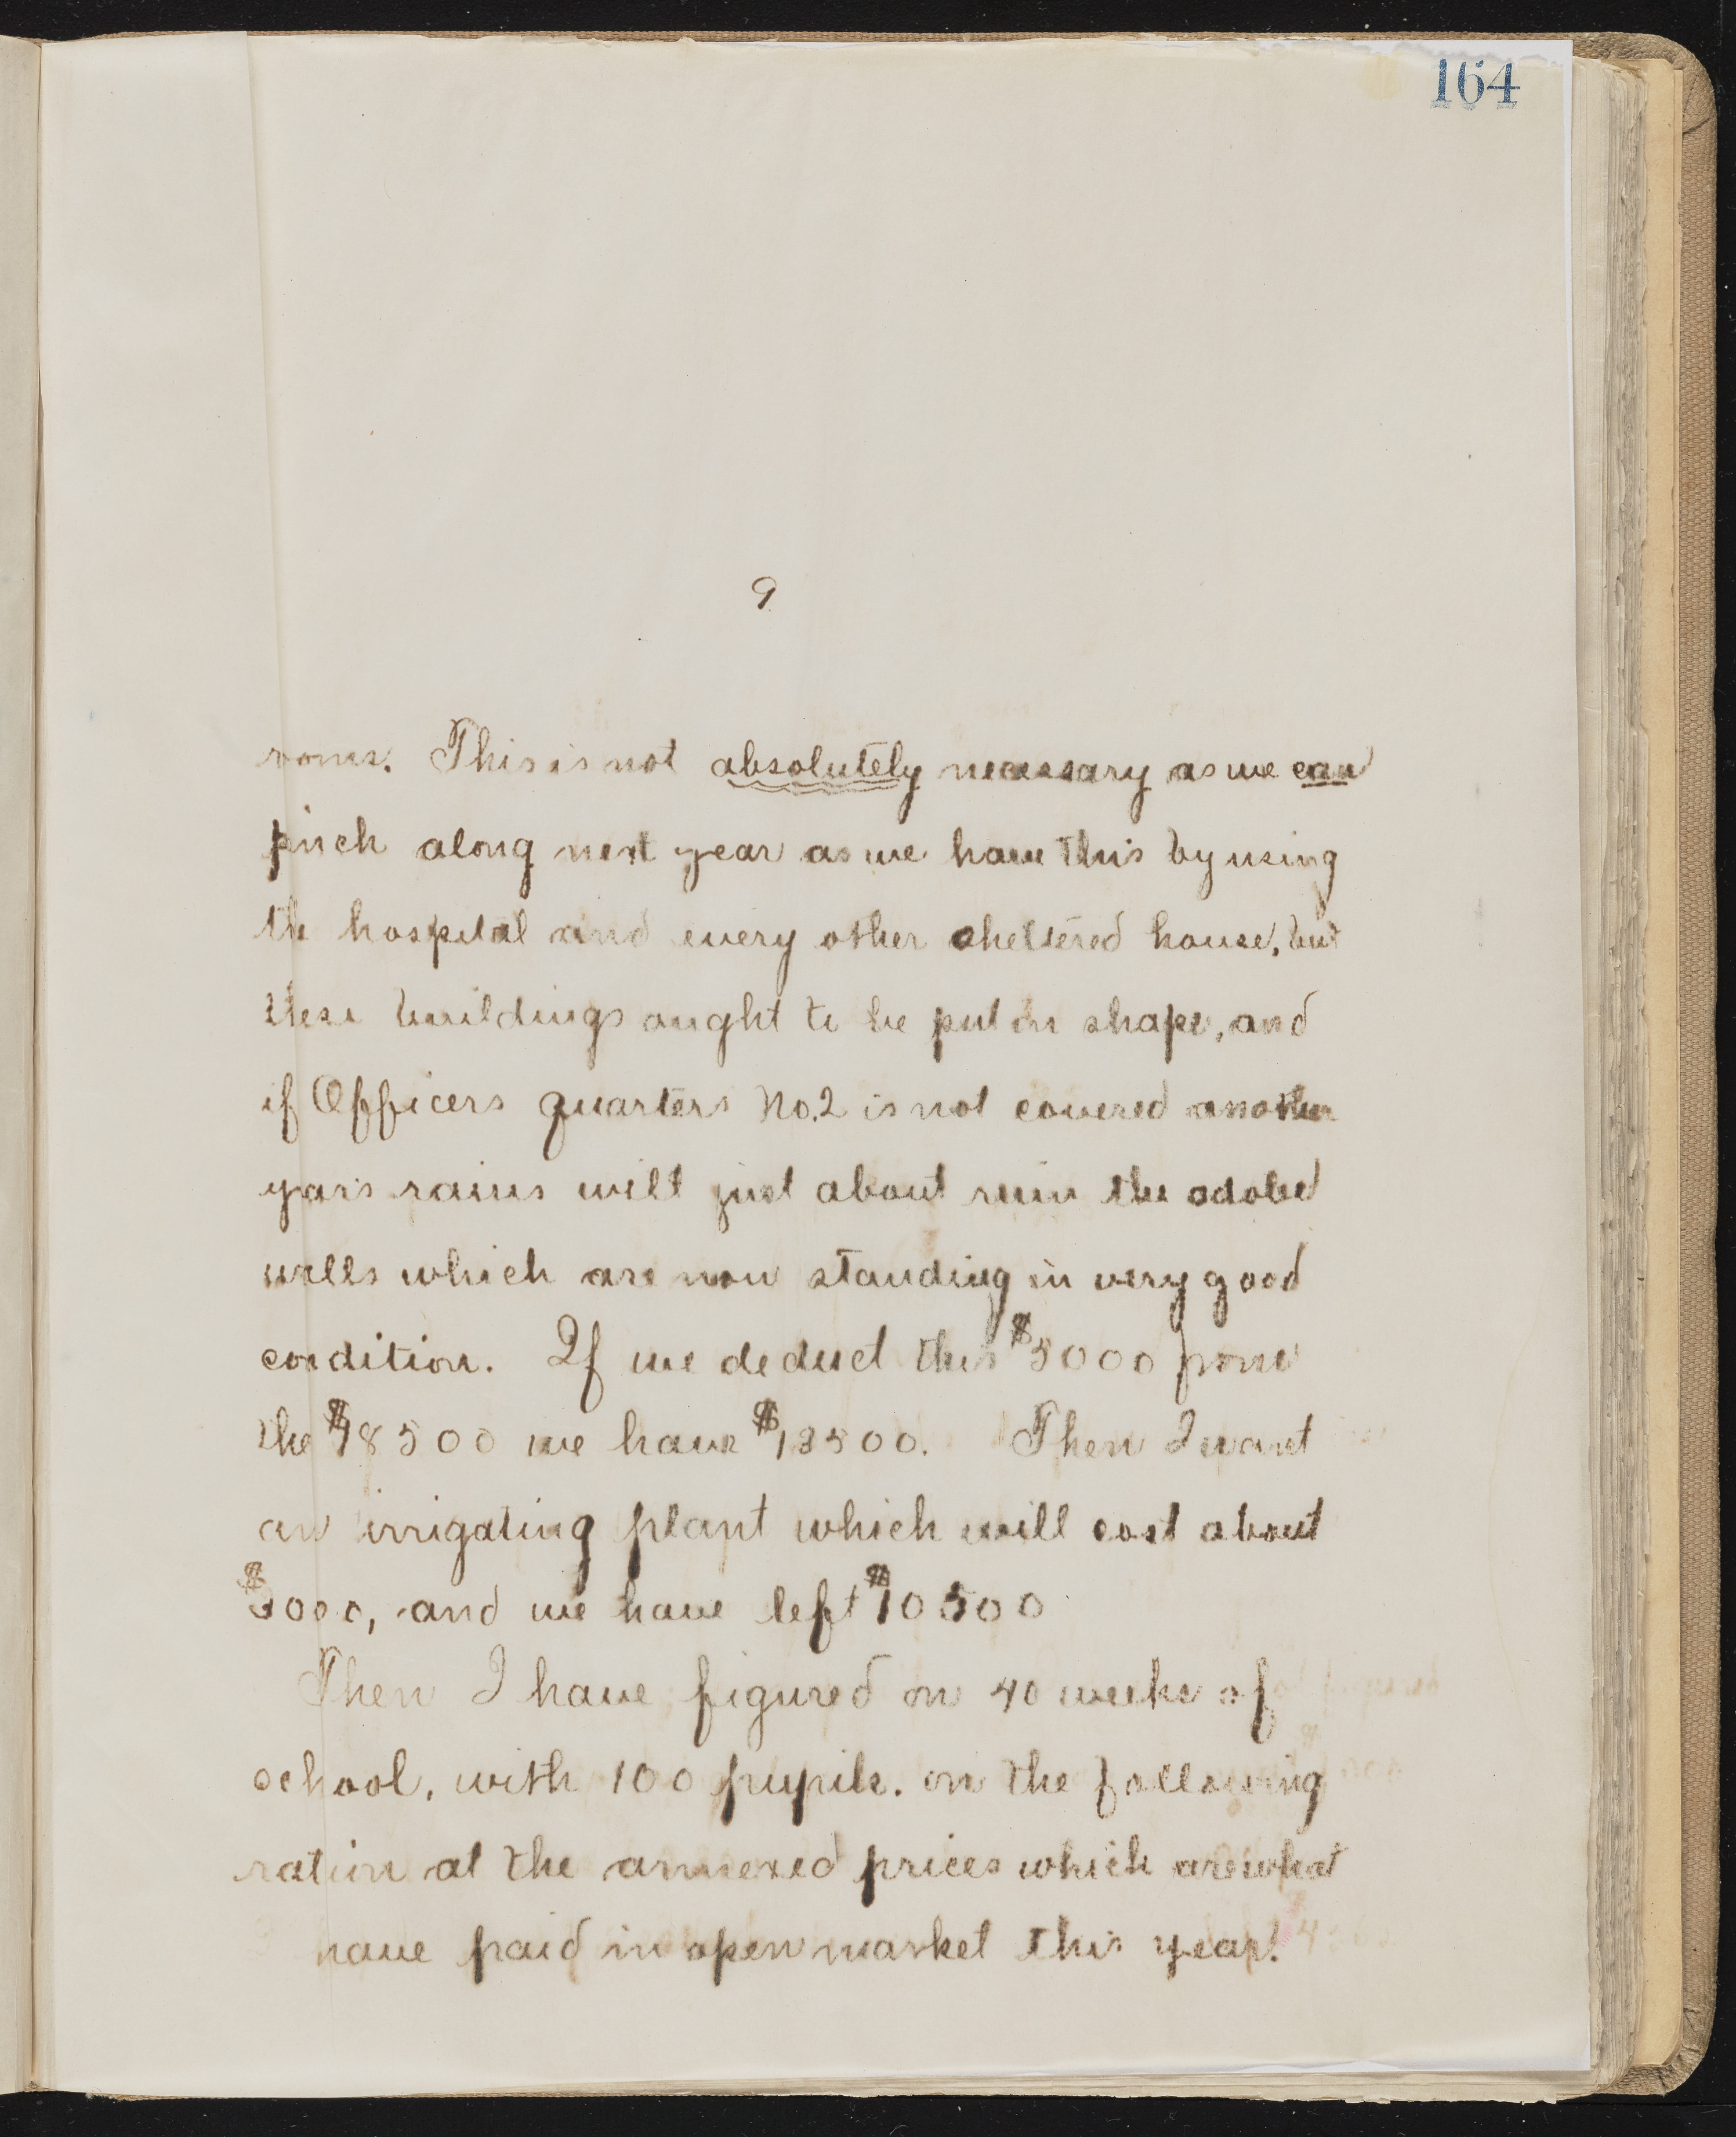 164
9
rooms. This is not absolutely necessary as we can
pinch along next year as we have this by using
the hospital and every other sheltered house, but
these buildings ought to be put in shape, and
if Officers quarters No. 2 is not covered another
years rains will just about ruin the adobe
walls which are now standing in very good
condition. If we deduct this $5000 from
the $18500 we have $13500. Then I want
an irrigating plant which will cost about
$3000, and we have left $10500
Then I have figured on 40 weeks of
school, with 100 pupils. on the following
ration at the annexed prices which are what
have paid in open market this year.